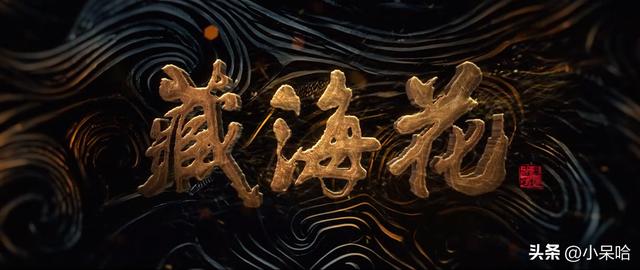 藏海花
头条 @小呆哈